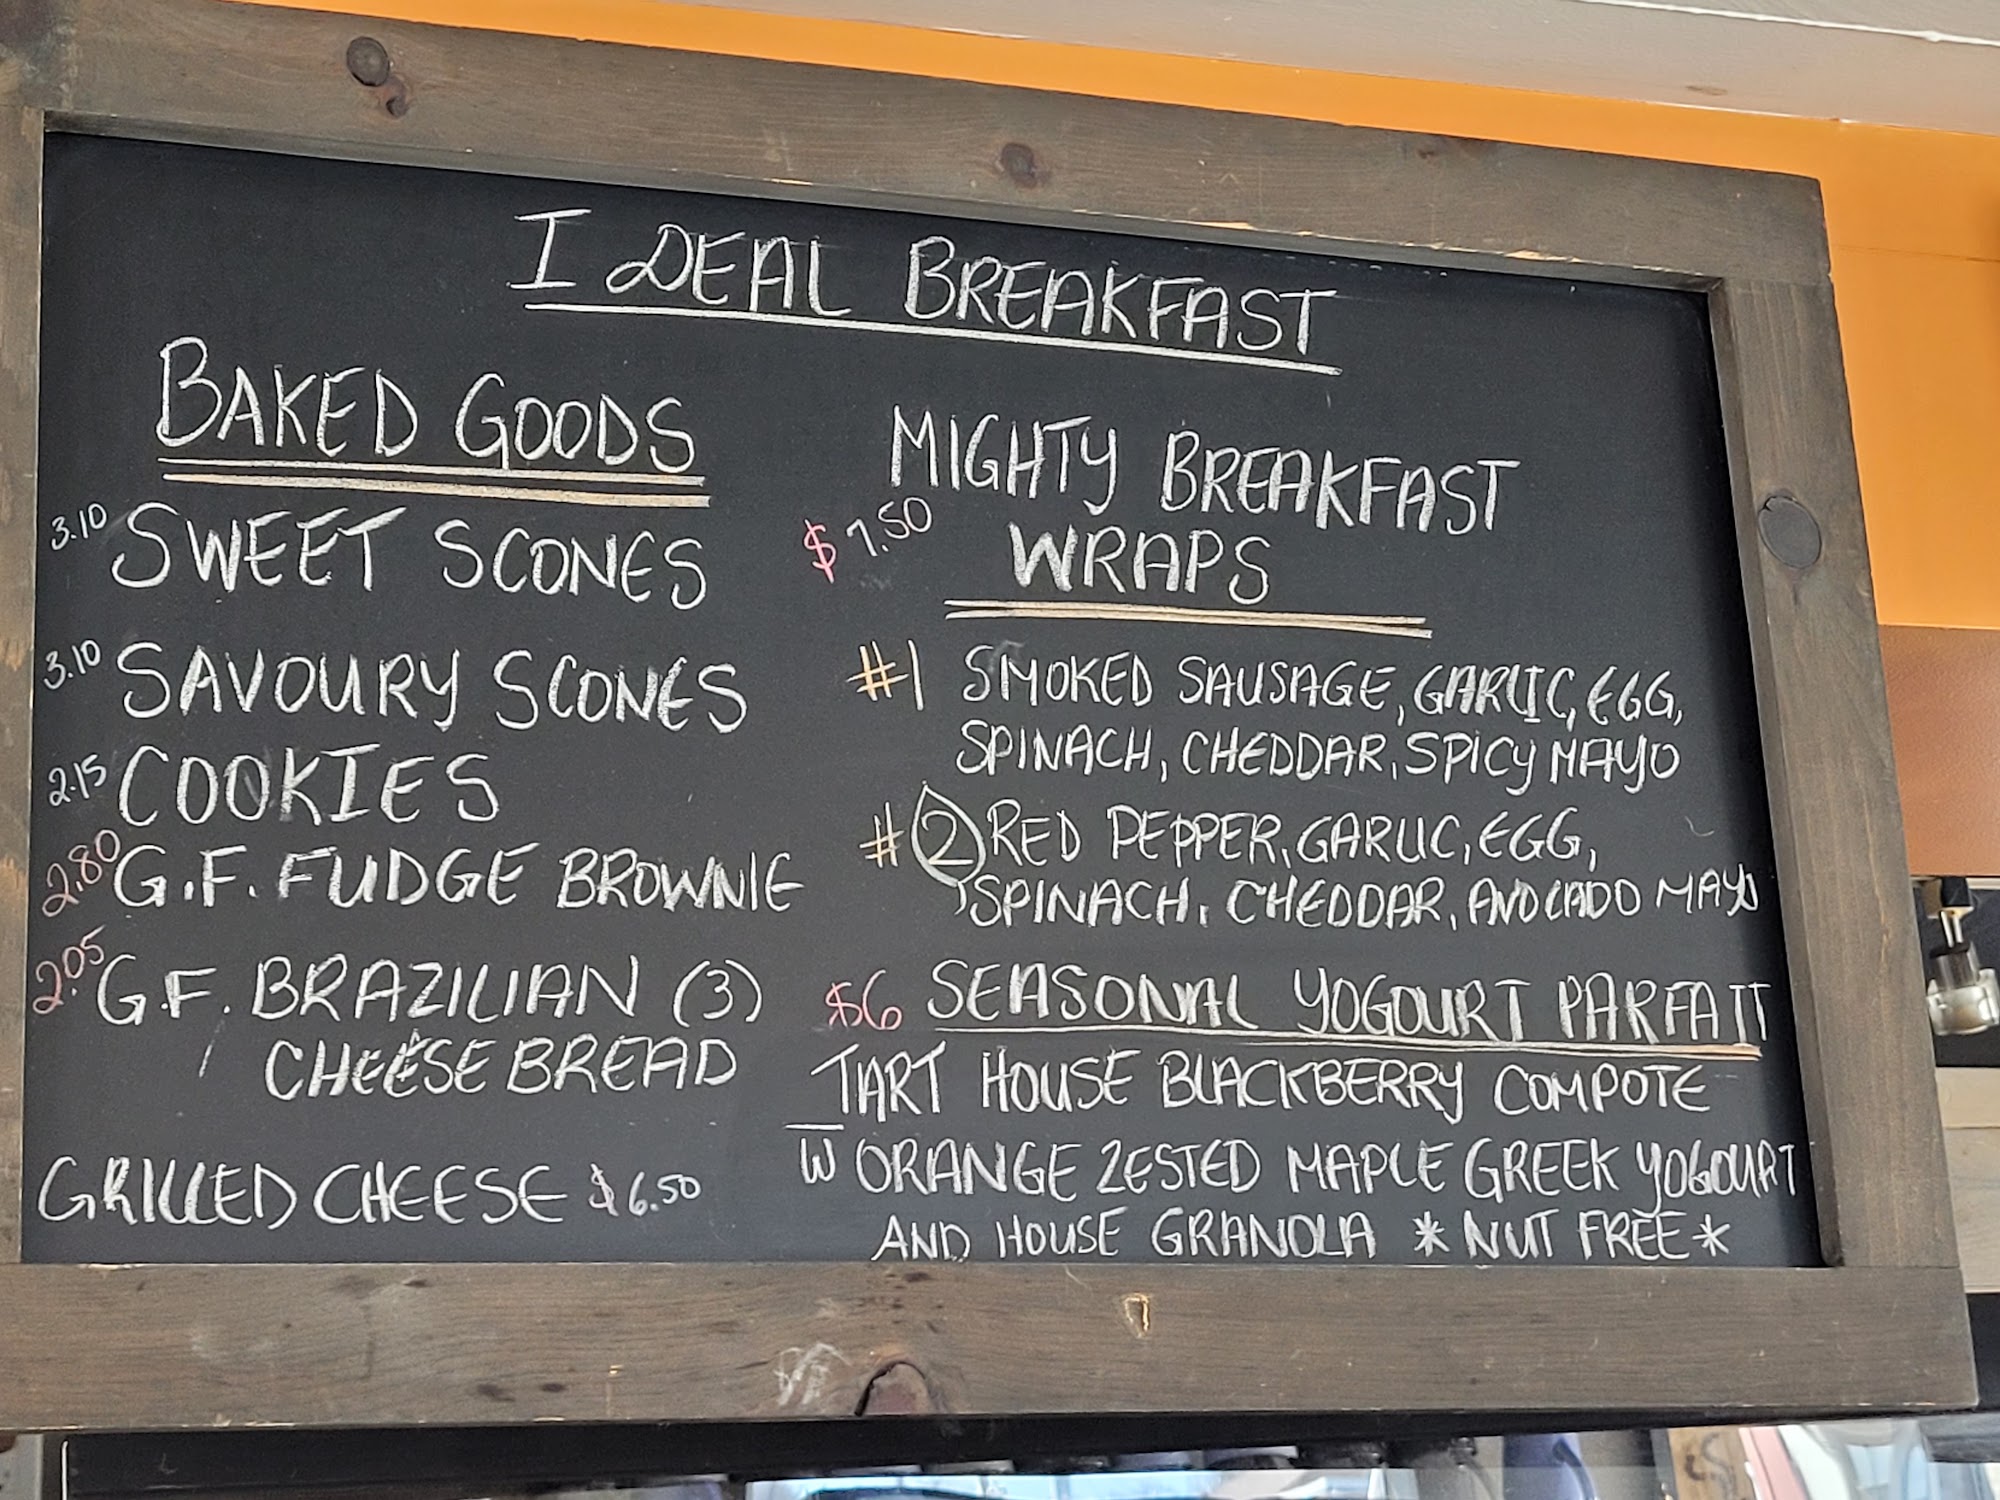 I DEAL BREAKFAST
BAKED GOODS
3.10 SWEET SCONES
3.10 SAVOURY SCONES
2.15 COOKIES
2.80 G.F. FUDGE BROWNIE
2.05 G.F. BRAZILIAN (3)
CHEESE BREAD
GRILLED CHEESE $6.50
MIGHTY BREAKFAST
$7.50 WRAPS
#1 SMOKED SAUSAGE, GARLIC, EGG,
SPINACH, CHEDDAR, SPICY MAYO
#2 RED PEPPER, GARLIC, EGG,
SPINACH, CHEDDAR, AVOCADO MAYO
$6 SEASONAL YOGOURT PARFAIT
TART HOUSE BLACKBERRY COMPOTE
W ORANGE ZESTED MAPLE GREEK YOGOURT
AND HOUSE GRANOLA * NUT FREE *